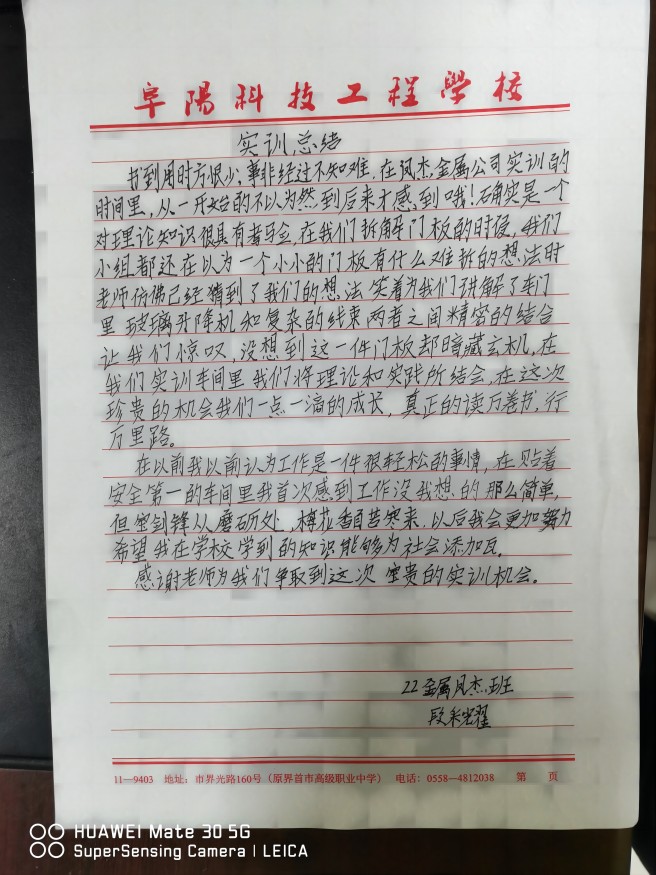 阜陽科技工程學校
实训总结
书到用时方恨少,事非经过不知难,在风杰金属公司实训的
时间里,从一开始的不以为然到后来才感到哦!确实是一个
对理论知识很具有考验,在我们拆解门板的时候,我们
小组都还在以为一个小小的门板有什么难拆的想法时
老师仿佛已经猜到了我们的想法笑着为我们讲解了车门
里玻璃升降机和复杂的线束两者之间精密的结合
让我们惊叹,没想到这一件门板却暗藏玄机,在
我们实训车间里我们将理论和实践所结会,在这次
珍贵的机会我们一点一滴的成长,真正的读万卷书,行
万里路。
在以前我以前认为工作是一件很轻松的事情,在贴着
安全第一的车间里我首次感到工作没我想的那么简单,
但宝剑锋从磨砺处,梅花香自苦寒来,以后我会更加努力
希望我在学校学到的知识能够为社会添加瓦。
感谢老师为我们争取到这次宝贵的实训机会。
22金属风杰班
段
11—9403 地址:市界光路160号(原界首市高级职业中学) 电话:0558—4812038 第 页
HUAWEI Mate 30 5G
SuperSensing Camera | LEICA